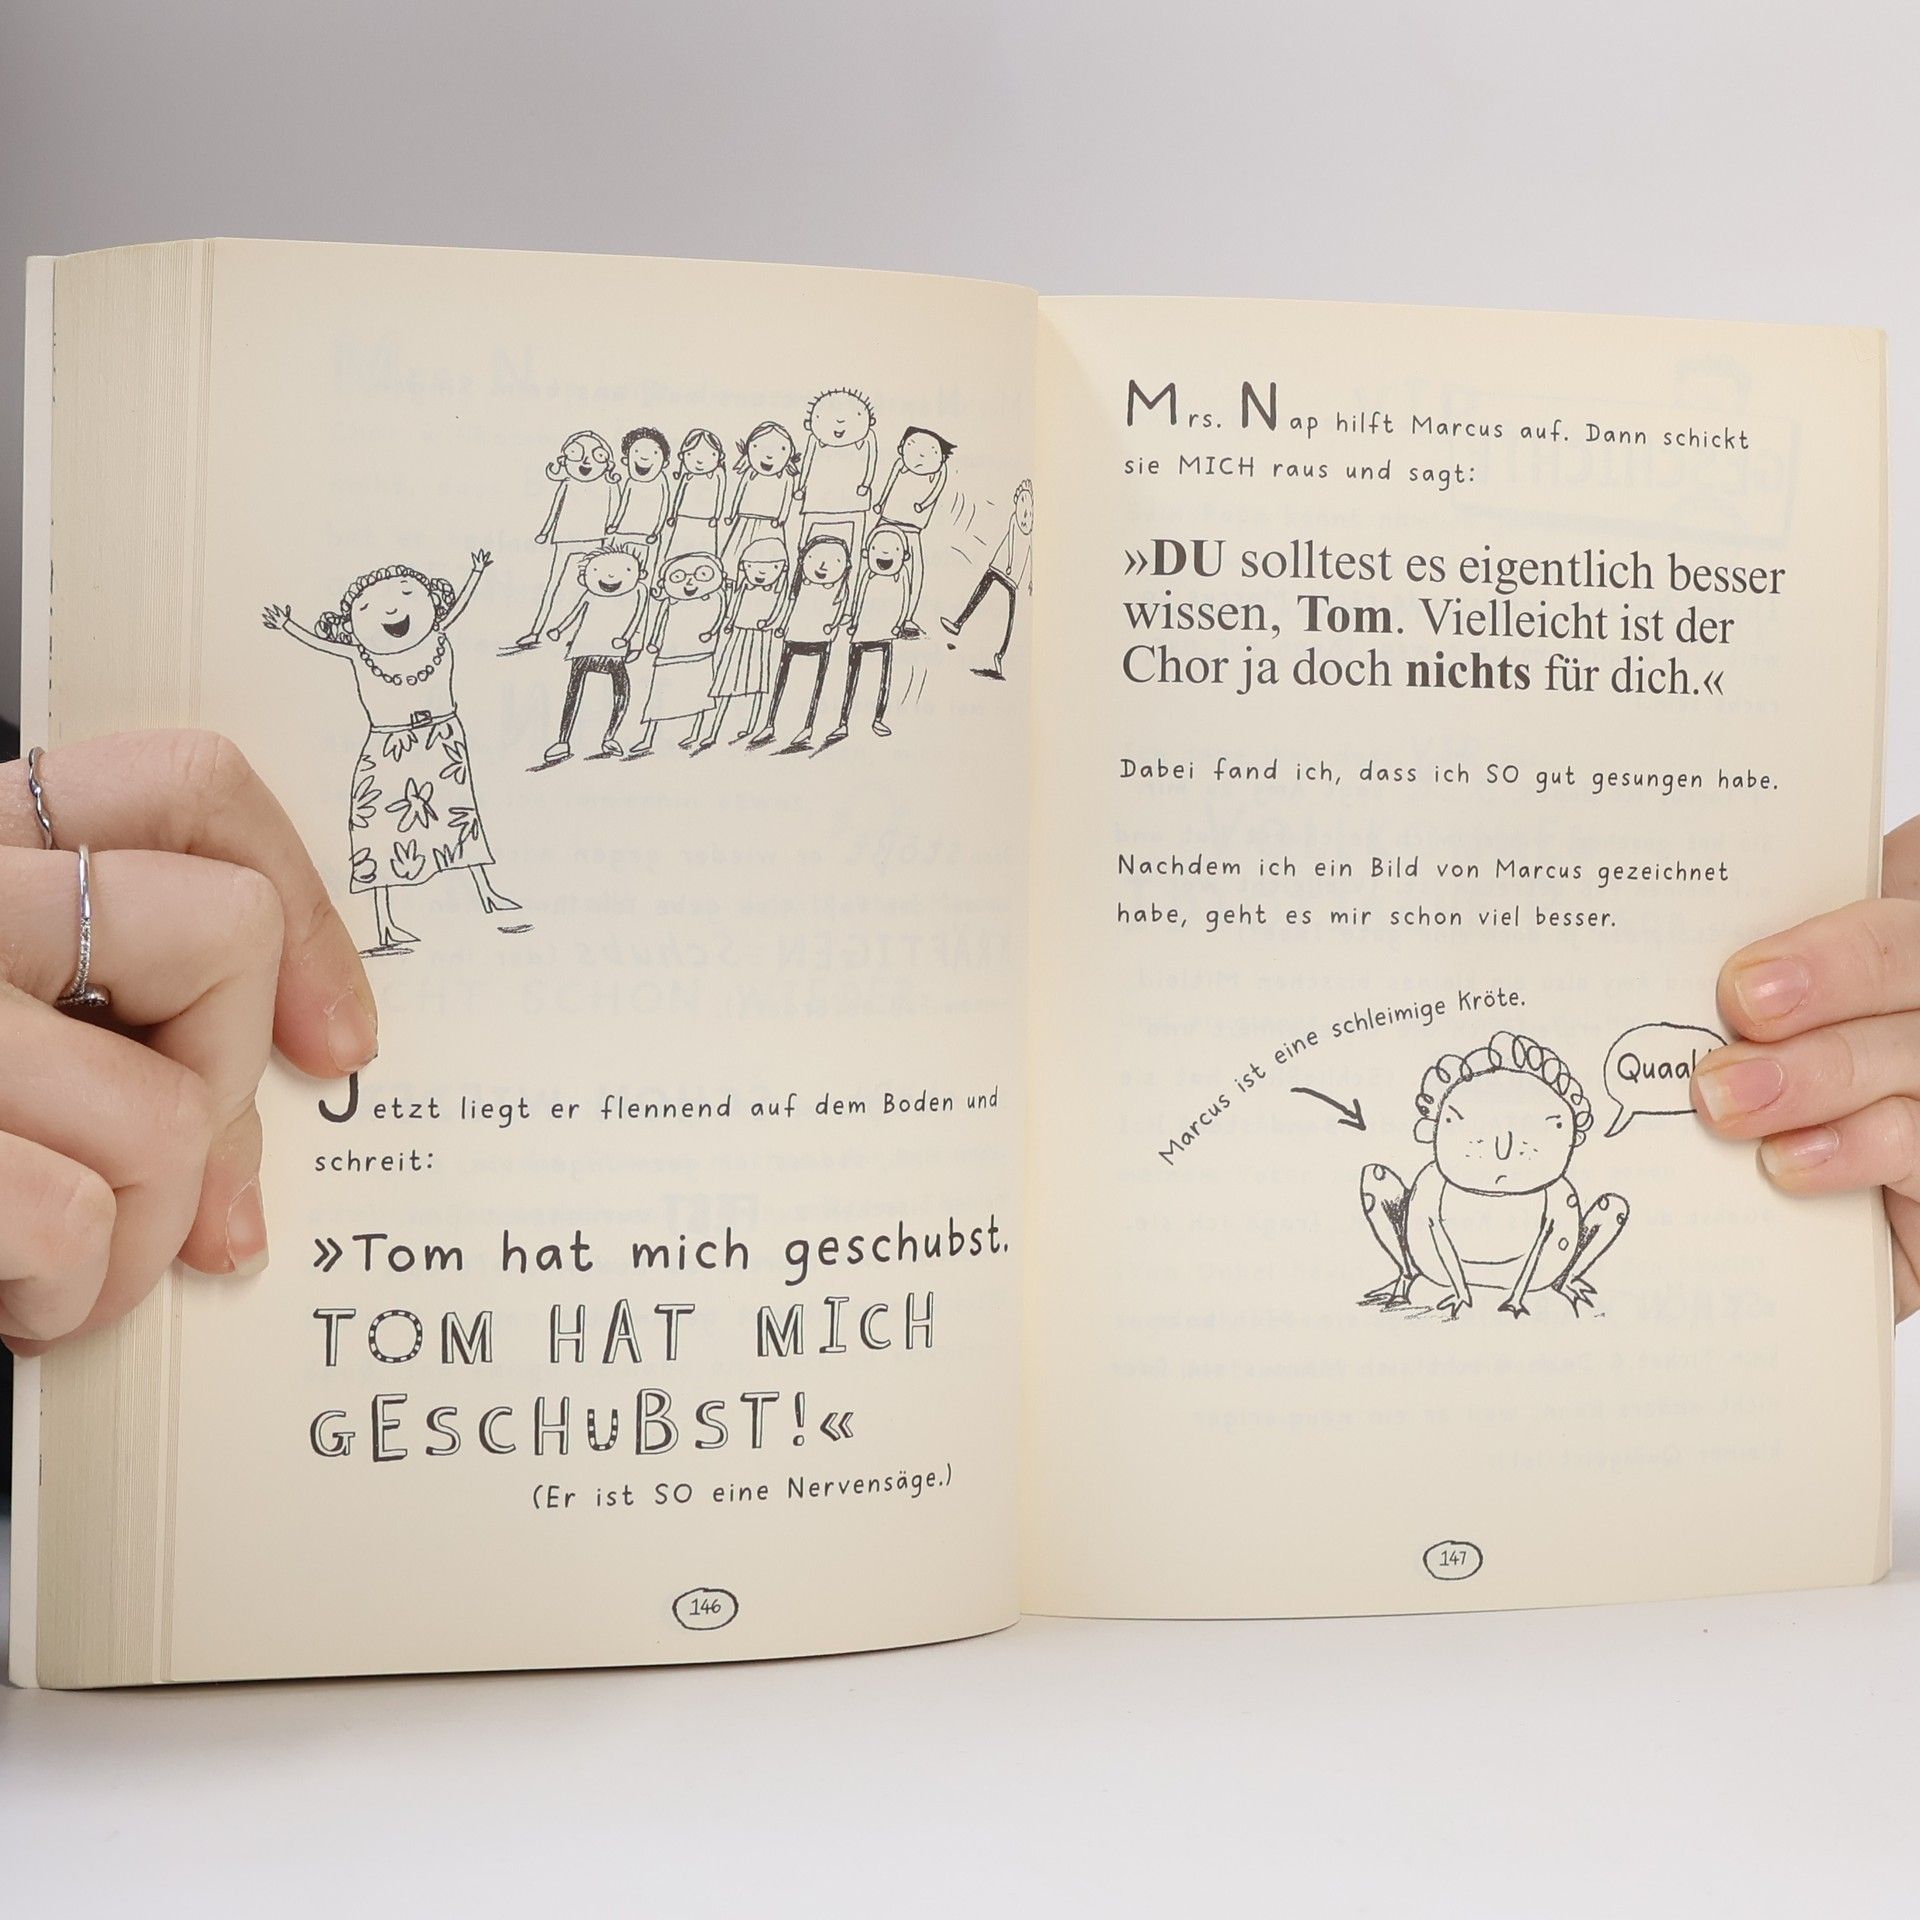 Jetzt liegt er flennend auf dem Boden und
schreit:
»Tom hat mich geschubst.
TOM HAT MICH
GESCHUBST!«
(Er ist SO eine Nervensäge.)
146
Mrs. Nap hilft Marcus auf. Dann schickt
sie MICH raus und sagt:
»DU solltest es eigentlich besser
wissen, Tom. Vielleicht ist der
Chor ja doch nichts für dich.«
Dabei fand ich, dass ich SO gut gesungen habe.
Nachdem ich ein Bild von Marcus gezeichnet
habe, geht es mir schon viel besser.
Marcus ist eine schleimige Kröte.
147